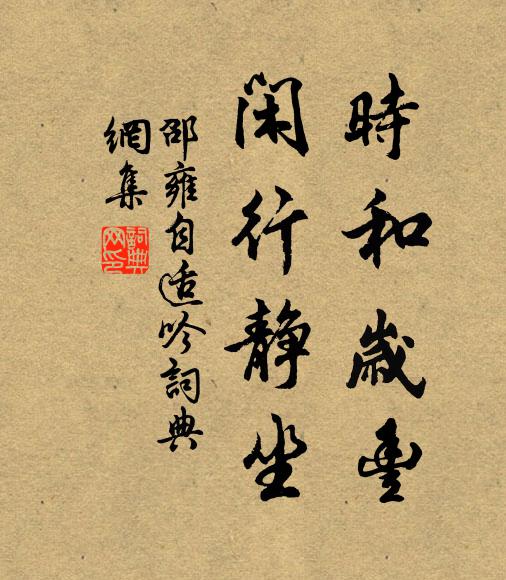 時和歲豐
閑行静坐
邵雍自适吟詞典
網集
詞典
网印